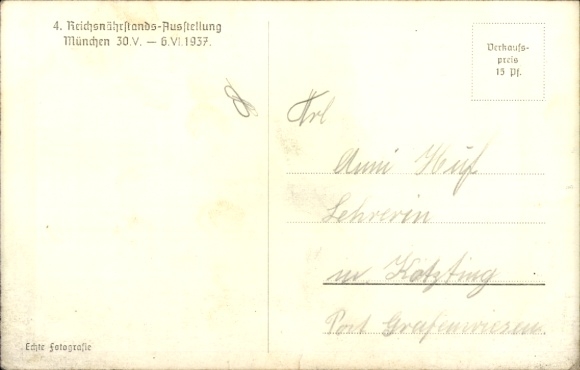 4. Reichsnährstands-Ausstellung
München 30.V. — 6.VI.1937.
Verkaufs-
preis
15 Pf.
Frl
Anni Huf
Lehrerin
in Kötzting
Post Grafenwiesen.
Echte Fotografie